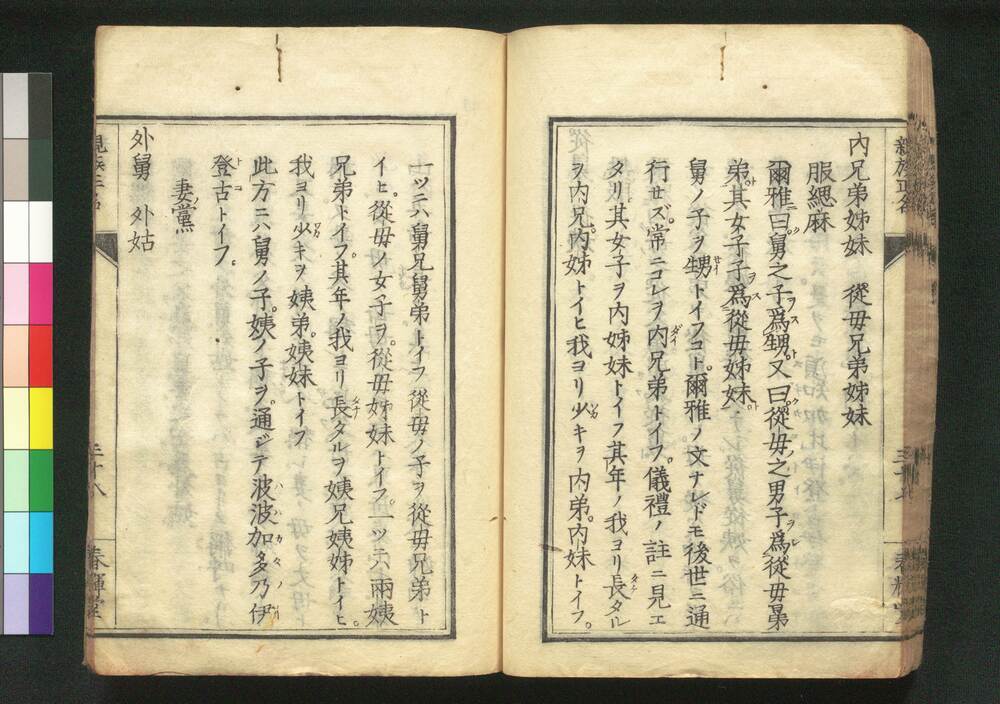 親族正名
三十七
春輝堂
内兄弟姉妹　從母兄弟姉妹
服緦麻
爾雅曰。舅之子爲甥。又曰。從母之男子爲從母晜
弟。其女子子爲從母姉妹。
舅ノ子ヲ甥トイフコト。爾雅ノ文ナレドモ後世ニ通
行セズ。常ニコレヲ内兄弟トイフ。儀禮ノ註ニ見エ
タリ其女子ヲ内姉妹トイフ其年ノ我ヨリ長タル
ヲ内兄。内姉トイヒ我ヨリ少キヲ内弟。内妹トイフ。
一ツニハ舅兄舅弟トイフ從母ノ子ヲ從母兄弟ト
イヒ。從母ノ女子ヲ。從母姉妹トイフ。一ツニハ兩姨
兄弟トイフ。其年ノ我ヨリ長タルヲ姨兄姨姉トイヒ。
我ヨリ少キヲ姨弟。姨妹トイフ
此方ニハ舅ノ子。姨ノ子ヲ。通ジテ波波加多乃伊
登古トイフ。
妻黨
外舅　外姑
親族正名
三十八
春輝堂